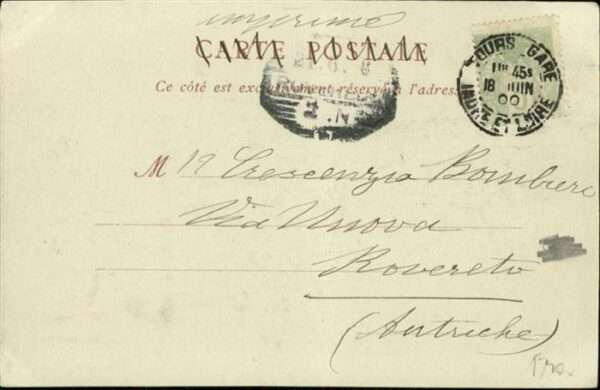 imprimé
CARTE POSTALE
Ce côté est exclusivement réservé à l'adresse
TOURS GARE
1ER 45S
18 JUIN
00
INDRE ET LOIRE
M 12 Crescenzia Bombieri
Via Nuova
Rovereto
(Autriche)